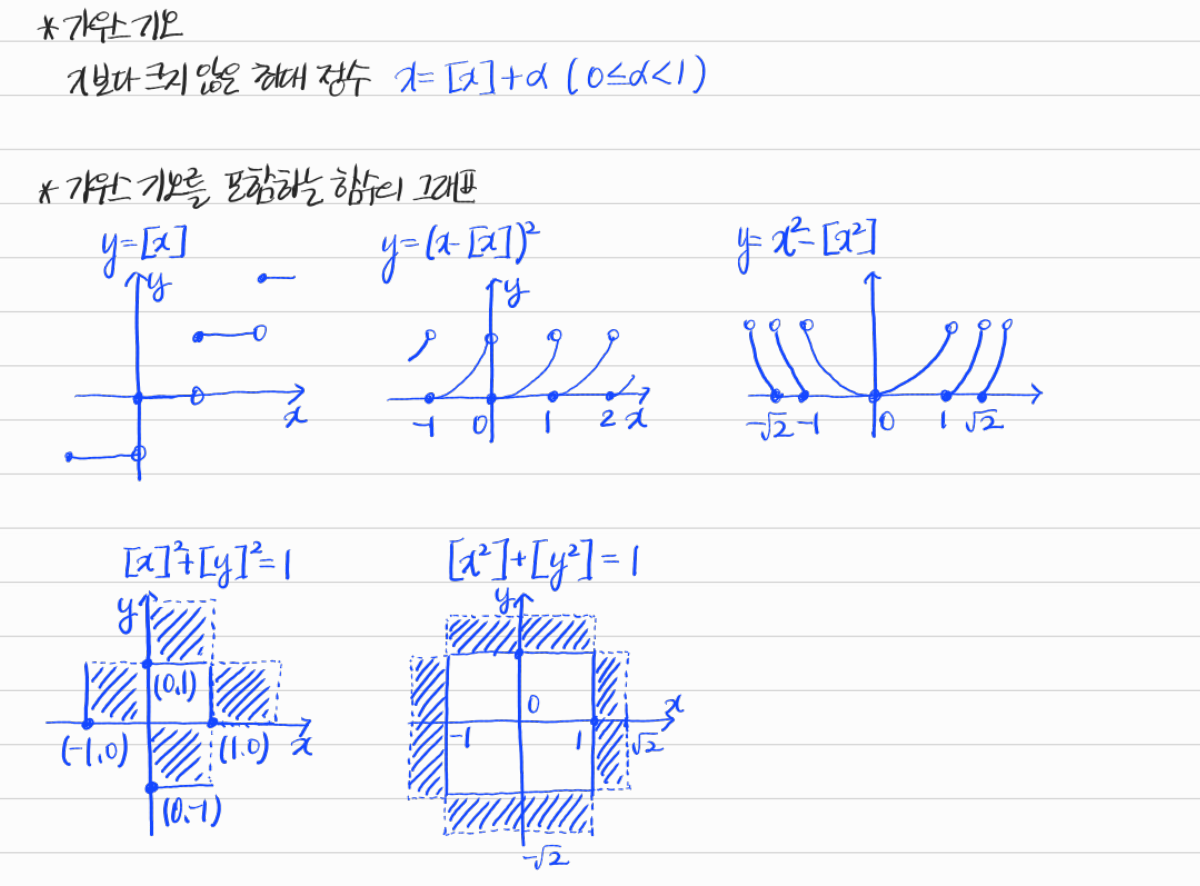 * 가우스 기호
x보다 크지 않은 최대 정수 x = [x] + α (0 ≤ α < 1)
* 가우스 기호를 포함하는 함수의 그래프
y = [x]
y
x
y = (x - [x])²
y
-1 0 1 2 x
y = x² - [x²]
-√2 -1 0 1 √2
[x]² + [y]² = 1
y
(0,1)
(-1,0) (1.0) x
(0,-1)
[x²] + [y²] = 1
y
0 x
-1 1 √2
-√2